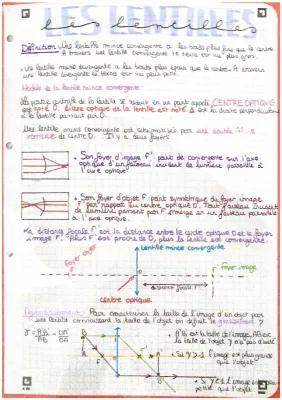 LES LENTILLES
Les lentilles
Définition : Une lentille mince convergente a les bords plus fins que le centre
A travers une lentille convergente le texte est vu plus gros.
• Une lentille mince divergente a les bords plus épais que le centre. A travers
une lentille divergente le texte est vu plus petit.
Modèle de la lentille mince convergente :
La partie centrale de la lentille se réduit en un point appelé CENTRE OPTIQUE
noté O. L'axe optique de la lentille est noté Δ est la droite perpendiculaire
à la lentille passant par O.
Une lentille mince convergente est schématisée par une double
verticale de centre O. Il y a deux foyers :
• Son foyer d'image F' point de convergente sur l'axe
optique d'un faisceau incident de lumière parallèle à
l'axe optique
• Son foyer d'objet F. point symétrique du foyer image
F' par rapport au centre optique O. Tout faisceau incident
de lumière passant par F émerge en un faisceau parallèle
à l'axe optique.
La distance focale f' est la distance entre le centre optique O et le foyer
image F'. Plus F' est proche de O, plus la lentille est convergente.
lentille mince convergente
Foyer objet
F
O
F'
foyer image
Distance focale f'
centre optique
Agrandissement : Pour caractériser la taille de l'image d'un objet par
une lentille connaissant la taille de l'objet on définit le grandissement γ
γ = A'B' = OA'
AB OA
• A'B' est la taille de l'image, AB est
la taille de l'objet γ n'a pas d'unité
• Si γ > 1 l'image est plus grande
que l'objet
• Si γ < 1 l'image est plus
petite que l'objet